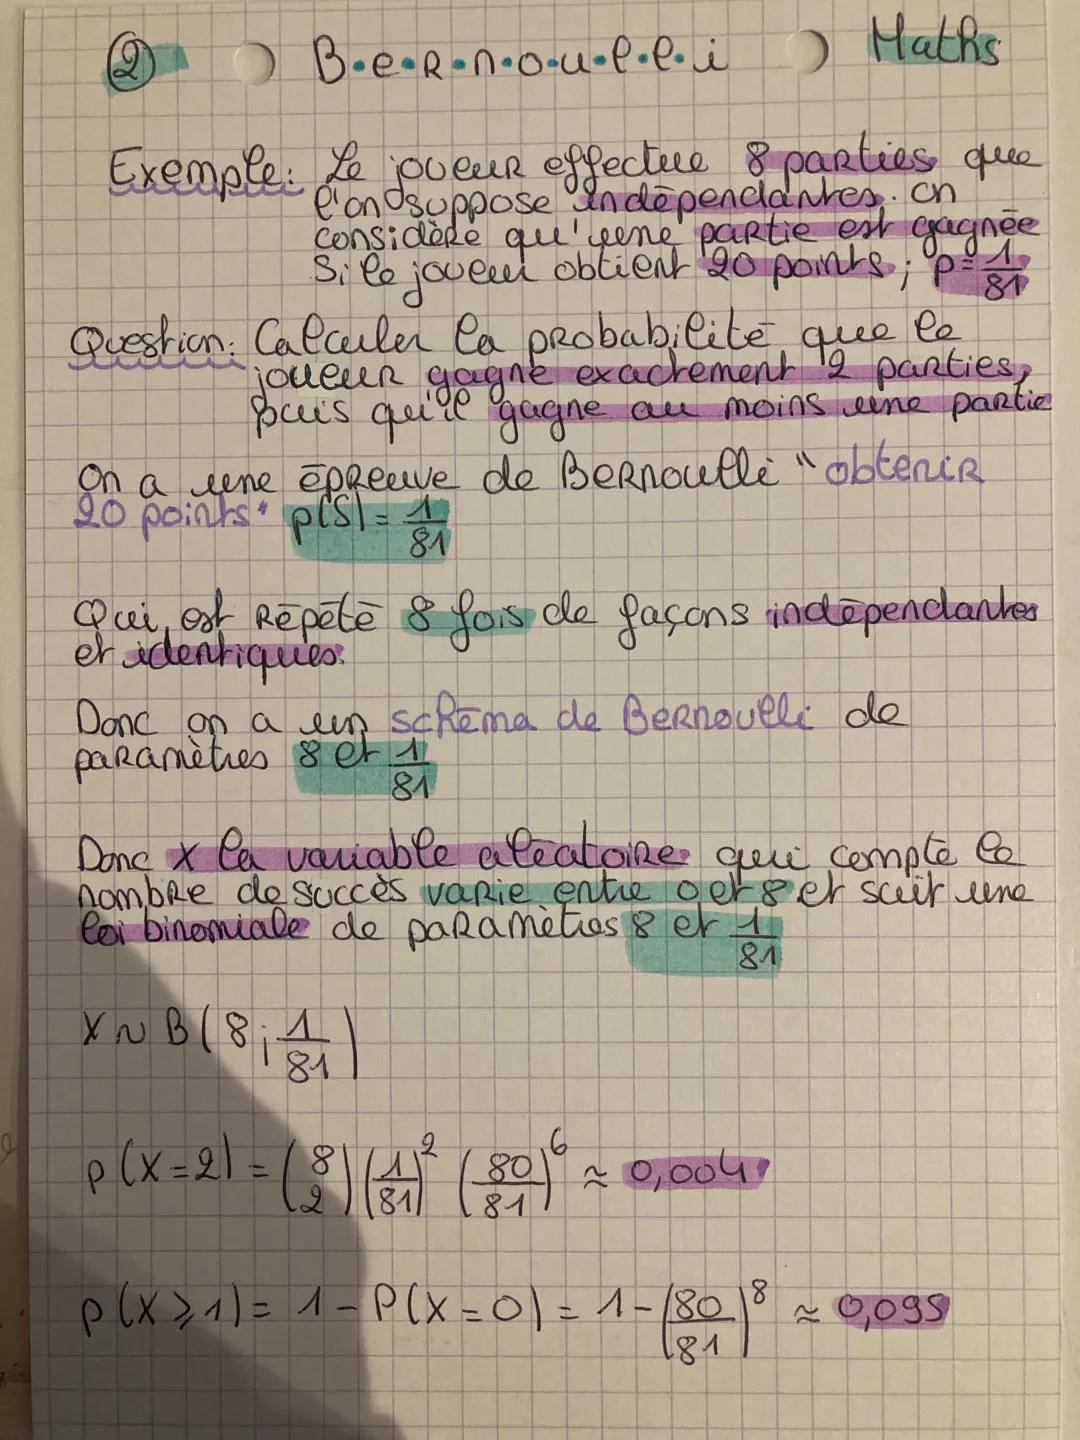 ② B.e.R.n.o.u.l.l.i Maths
Exemple: Le joueur effectue 8 parties que
l'on suppose indépendantes. On
considère qu'une partie est gagnée
Si le joueur obtient 20 points; p=1/81
Question: Calculer la probabilité que le
joueur gagne exactement 2 parties,
puis qu'il gagne au moins une partie
On a une épreuve de Bernoulli "obtenir
20 points" p(S)=1/81
Qui est Répété 8 fois de façons indépendantes
et identiques.
Donc on a un schéma de Bernoulli de
paramètres 8 et 1/81
Donc X la variable aléatoire qui compte le
nombre de succès varie entre 0 et 8 et suit une
loi binomiale de paramètres 8 et 1/81
X ~ B(8;1/81)
p(X=2) = (8 2)(1/81)² (80/81)⁶ ≈ 0,004
p(X≥1) = 1-P(X=0) = 1-(80/81)⁸ ≈ 0,095